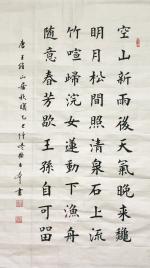 空山新雨後天氣晚來龝
明月松間照清泉石上流
竹喧歸浣女蓮動下漁舟
隨意春芳歇王孫自可留
唐王維山居秋暝乙巳仲冬書